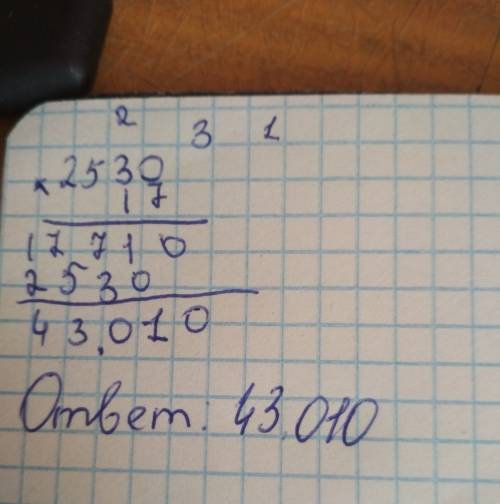 2 3 1
× 2530
17
17710
2530
43.010
Ответ: 43.010